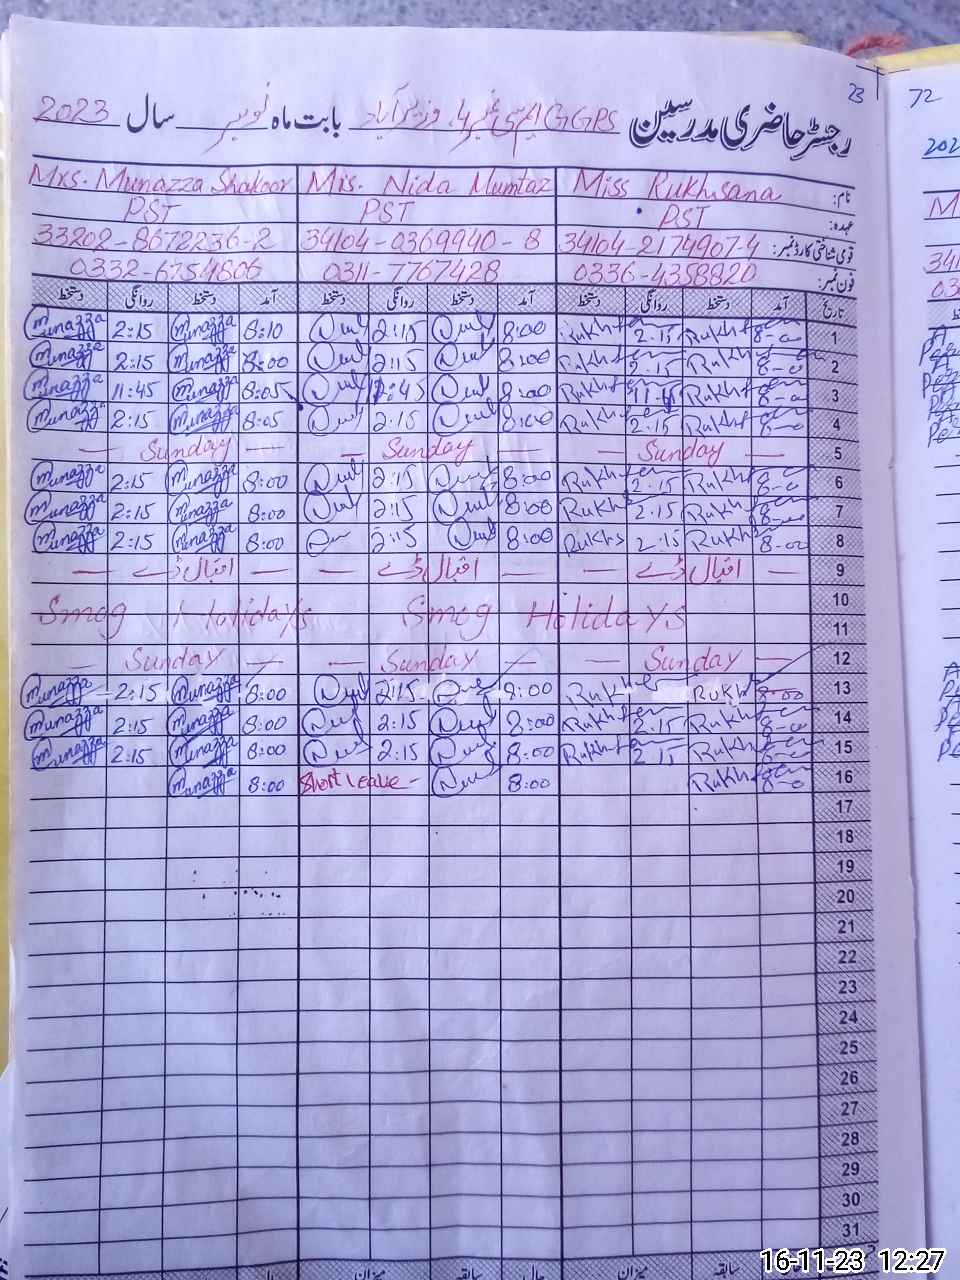 23
رجسٹر حاضری مدرسین GGPS ایم سی نمبر 4 وزیرآباد بابت ماہ نومبر سال 2023
نام: Miss Rukhsana Mis. Nida Mumtaz Mrs. Munazza Shakoor
عہدہ: PST PST PST
قومی شناختی کارڈ نمبر: 34104-2174907-4 34104-0369940-8 33202-8672236-2
فون نمبر: 0336-4358820 0311-7767428 0332-6754806
تاریخ آمد دستخط روانگی دستخط آمد دستخط روانگی دستخط آمد دستخط روانگی دستخط
1 8-00 Rukh 2.15 Rukh 8:00 2:15 8:10 Munazza 2:15 Munazza
2 8-00 Rukh 2.15 Rukh 8:00 2:15 8:00 Munazza 2:15 Munazza
3 8-0 Rukh 11-45 Rukh 8:00 11:45 8:05 Munazza 11:45 Munazza
4 8-0 Rukh 2.15 Rukh 8:00 2:15 8:05 Munazza 2:15 Munazza
5 — Sunday — — Sunday — — Sunday —
6 8-0 Rukh 2.15 Rukh 8:00 2:15 8:00 Munazza 2:15 Munazza
7 8-00 Rukh 2.15 Rukh 8:00 2:15 8:00 Munazza 2:15 Munazza
8 8-00 Rukhs 2.15 Rukhs 8:00 2:15 8:00 Munazza 2:15 Munazza
9 — اقبال ڈے — — اقبال ڈے — — اقبال ڈے —
10 Smog Holidays Smog Holidays
11
12 — Sunday — — Sunday — — Sunday —
13 8-00 Rukh Rukh 8:00 2:15 8:00 Munazza 2:15 Munazza
14 8-0 Rukh 2.15 Rukh 8:00 2:15 8:00 Munazza 2:15 Munazza
15 8-0 Rukh 2.15 Rukh 8:00 2:15 8:00 Munazza 2:15 Munazza
16 8-0 Rukh 8:00 Short leave - 8:00 Munazza
17
18
19
20
21
22
23
24
25
26
27
28
29
30
31
میزان سابقہ حال میزان سابقہ
72
202
16-11-23 12:27